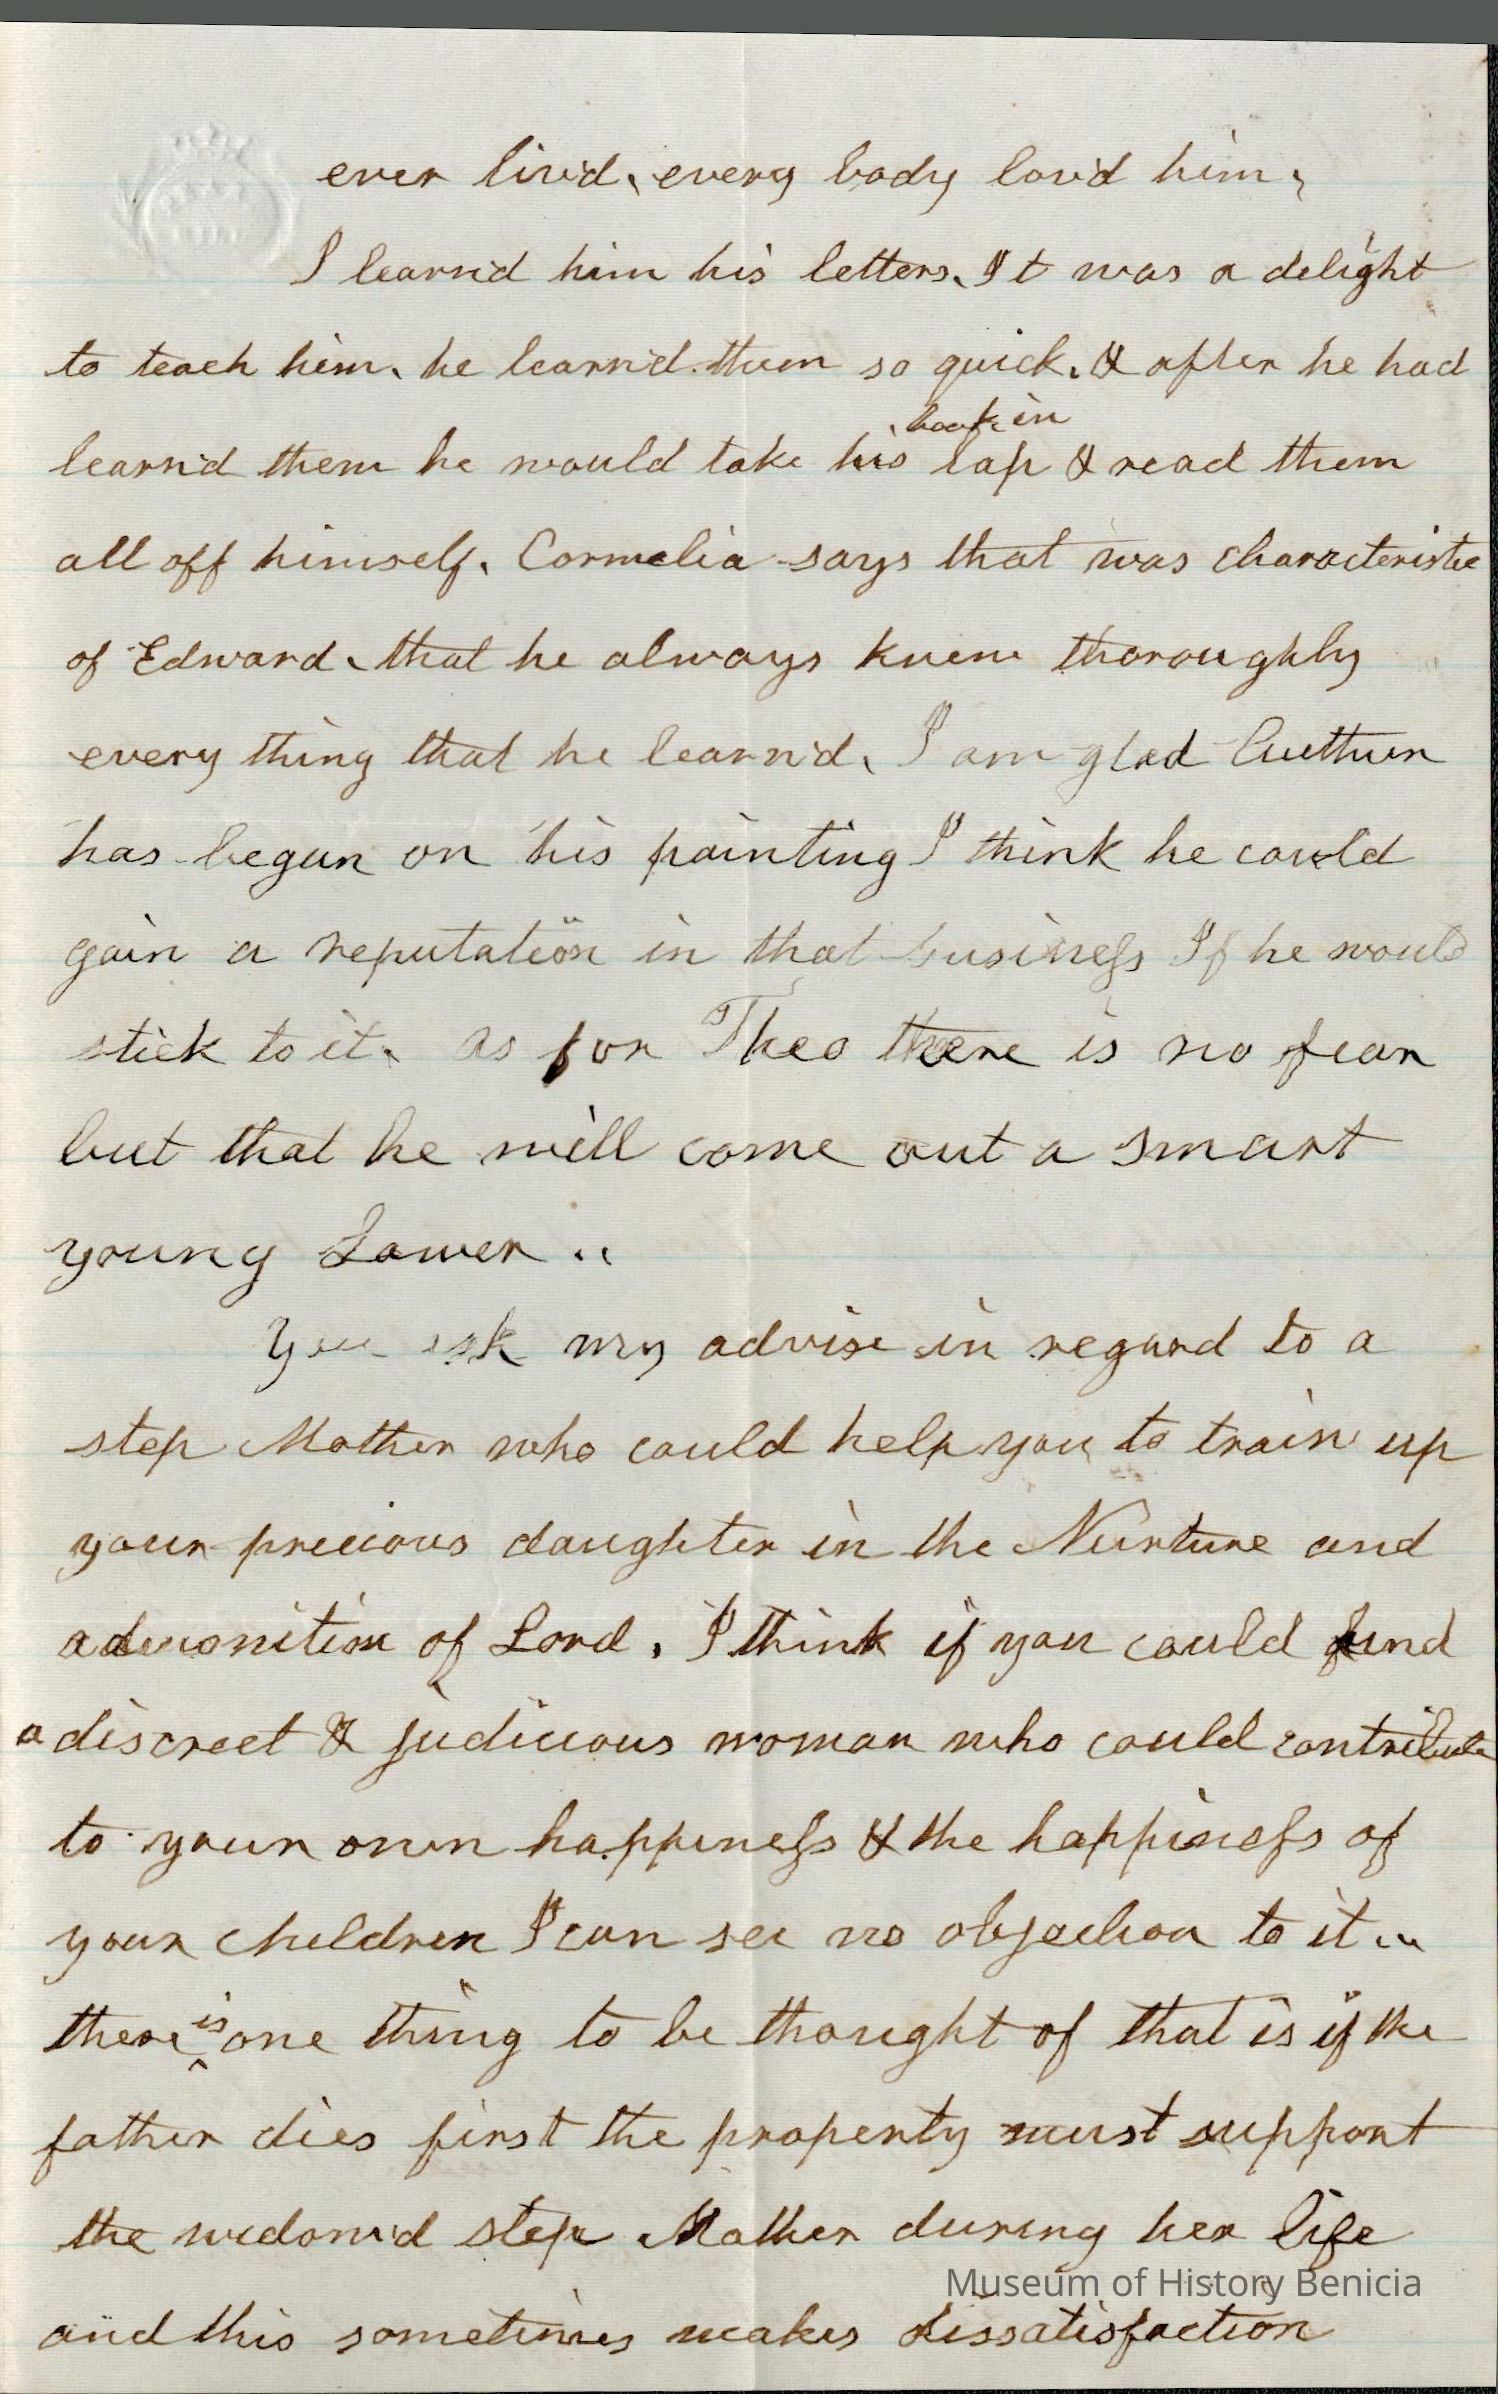 ever liv'd, every body lov'd him,
I learn'd him his letters, It was a delight
to teach him, he learn'd them so quick, & after he had
book in
learn'd them he would take his lap & read them
all off himself, Cornelia says that was characteristic
of Edward, that he always knew thoroughly
every thing that he learn'd, I am glad
has begun on his painting I think he could
gain a reputation in that business If he would
stick to it, as for Theo there is no fear
but that he will come out a smart
young Lawer ..
You ask my advise in regard to a
step Mother who could help you to train up
your precious daughter in the Nurture and
admonition of Lord, I think if you could find
a discreet & judicious woman who could contribute
to your own happiness & the happiness of
your children I can see no objection to it ..
is
there one thing to be thought of that is if the
father dies first the property must support
the widow'd step Mother during her life
Museum of History Benicia
and this sometimes makes dissatisfaction